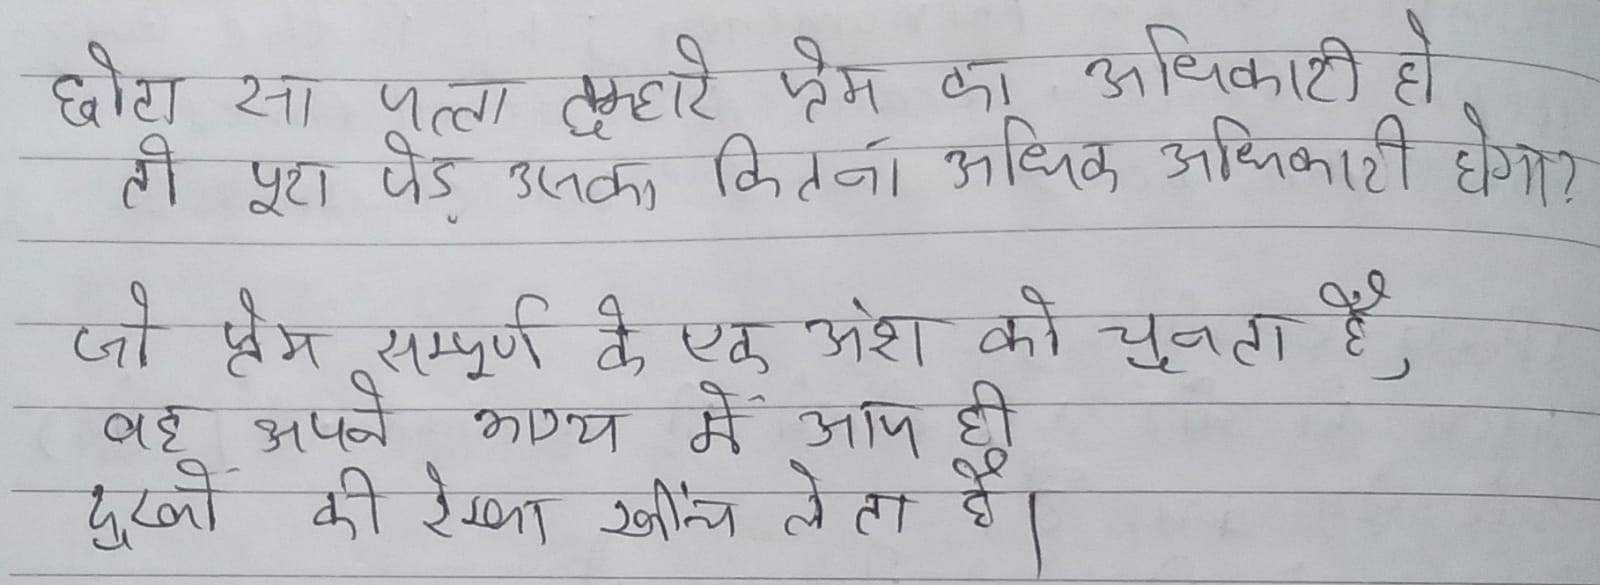 छोटा सा पत्ता तुम्हारे प्रेम का अधिकारी हो
तो पूरा पेड़ उसका कितना अधिक अधिकारी होगा?
जो प्रेम सम्पूर्ण के एक अंश को चुनता है,
वह अपने भाग्य में आप ही
दुखों की रेखा खींच लेता है।